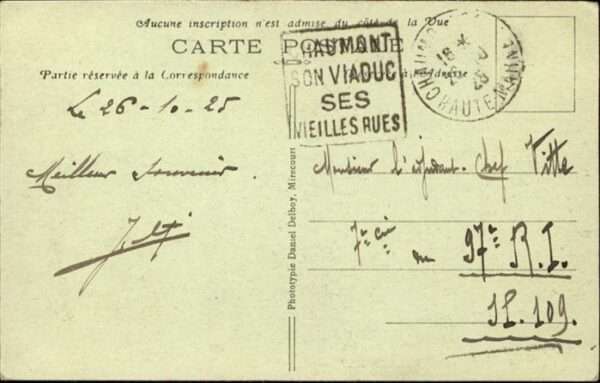 Aucune inscription n'est admise du côté de la Vue
CARTE POSTALE
Partie réservée à la Correspondance
à l'Adresse
CHAUMONT
SON VIADUC
SES
VIEILLES RUES
CHAUMONT
18 *
26
25
HAUTE-MARNE
Le 26-10-25
Meilleur Souvenir.
Monsieur l'adjudant-Chef Vitte
7e Cie
du 97e R.I.
S.P. 109.
Phototypie Daniel Delboy, Mirecourt